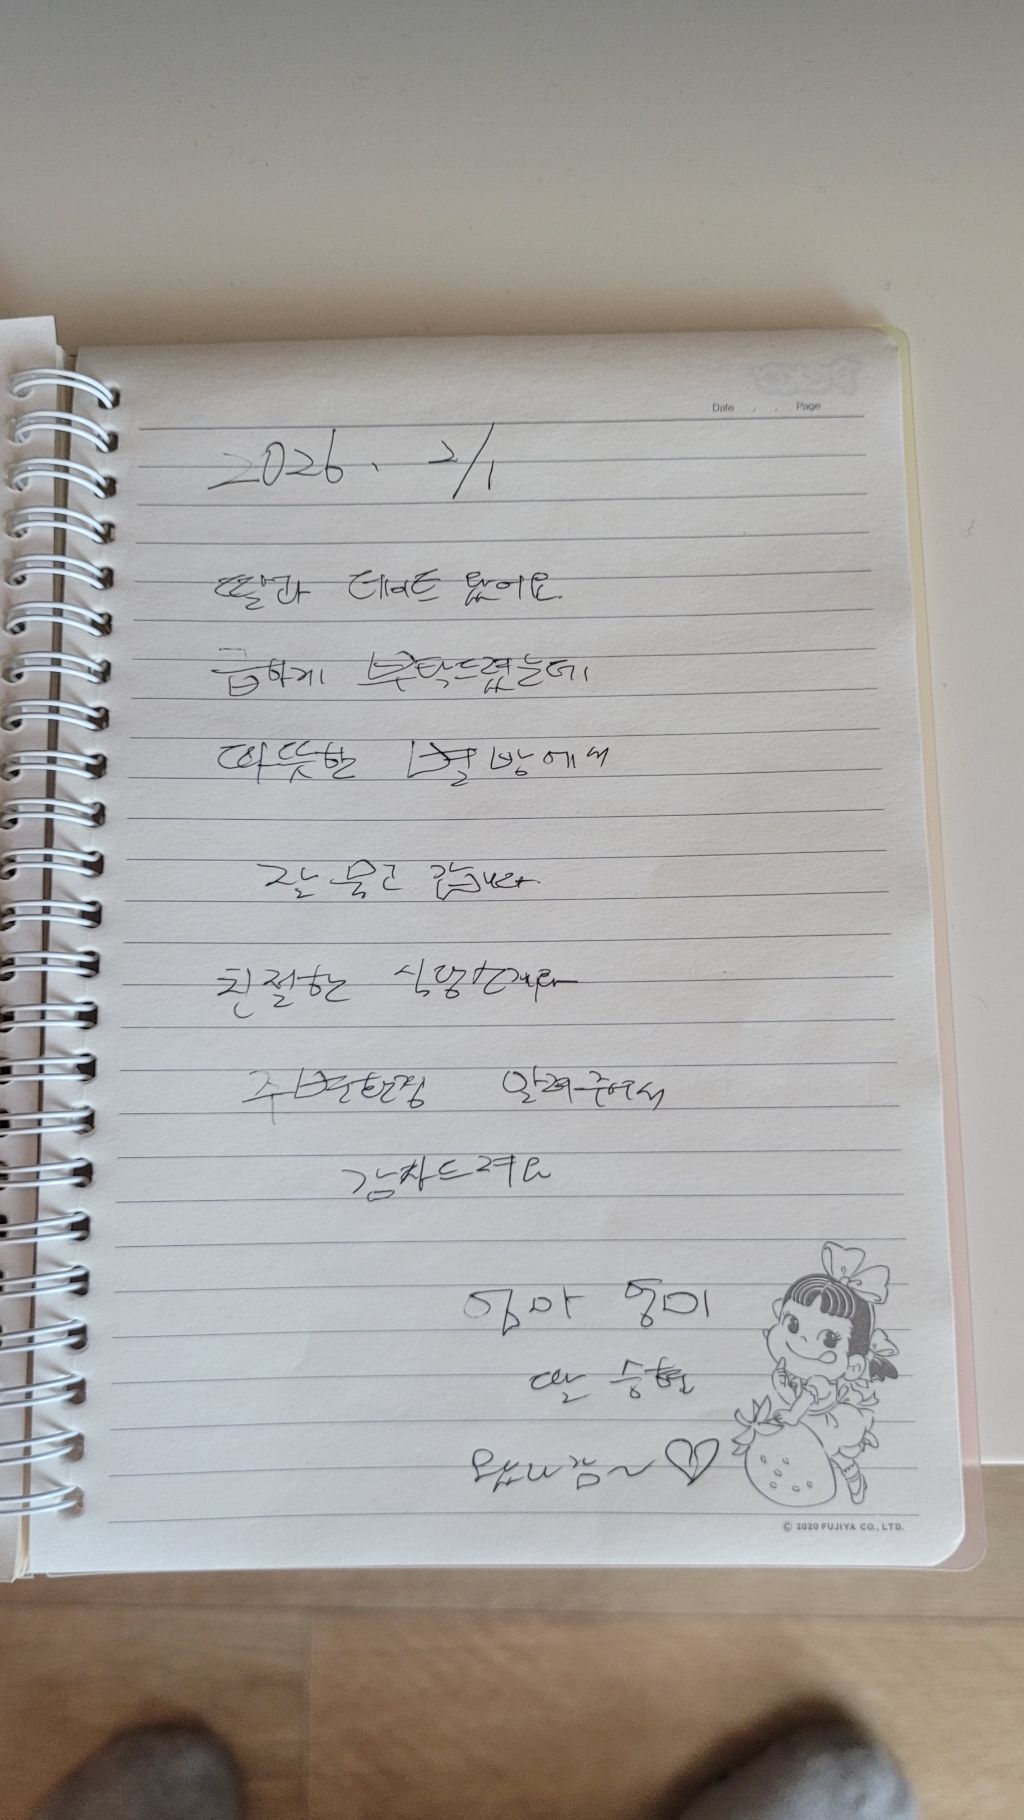 Date . . Page
2026. 2/1
딸과 데이트 왔어요.
급하게 부탁드렸는데
따뜻한 별방에서
잘 묵고 갑니다.
친절한 식당소개와
주변환경 알려주셔서
감사드려요
엄마
딸 승현
© 2020 FUJIYA CO., LTD.